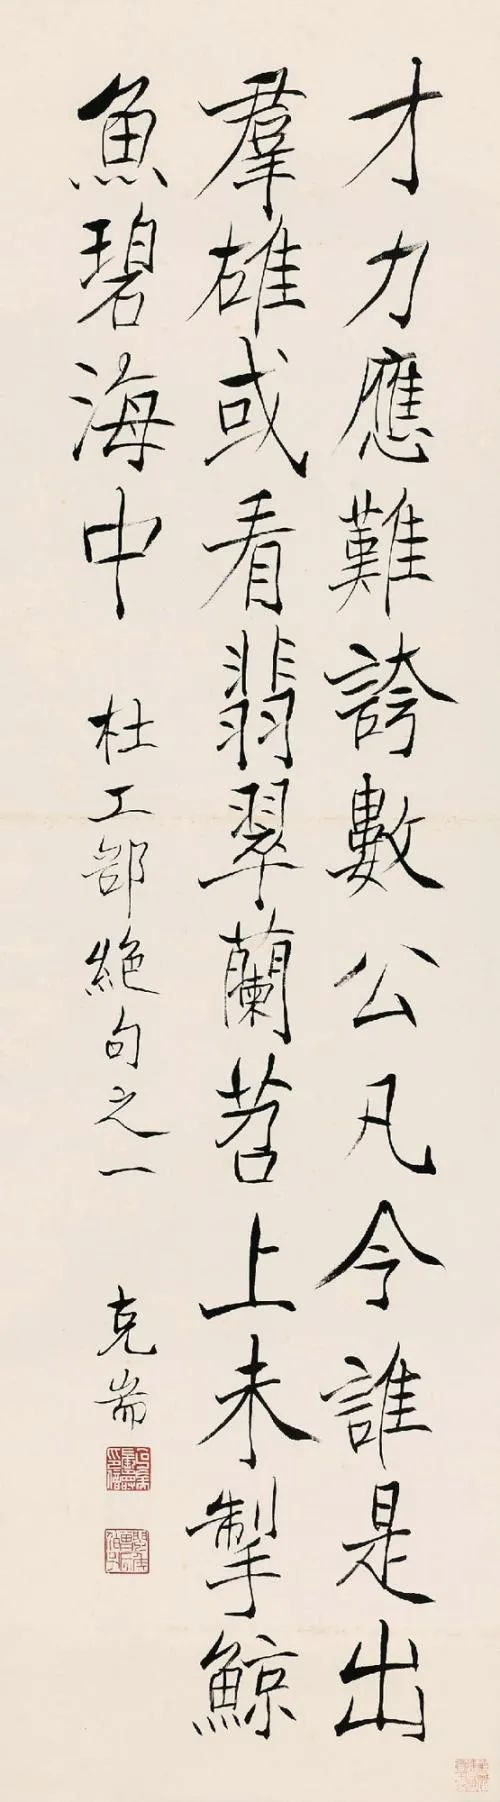 才力應難誇數公凡今誰是出
羣雄或看翡翠蘭苕上未掣鯨
魚碧海中 杜工部絶句之一 克耑